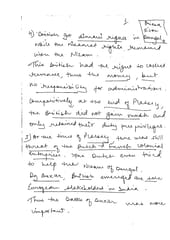 1
4) British got Diwani rights in Bengal
while the Nizamat rights remained
with the Nizam.
This British had the right to collect
revenue, thus the money, but
no responsibility for administration.
Comparatively at the end of Plassey,
the British did not gain much and
only retained their duty free privileges.
5) At the time of Plassey, there was still
threat of the Dutch & French Colonial
Enterprise. The Dutch even tried
to help the Nizam of Bengal
By Buxar, British emerged the sole
European stakeholders in India.
Thus the Battle of Buxar was more
important.